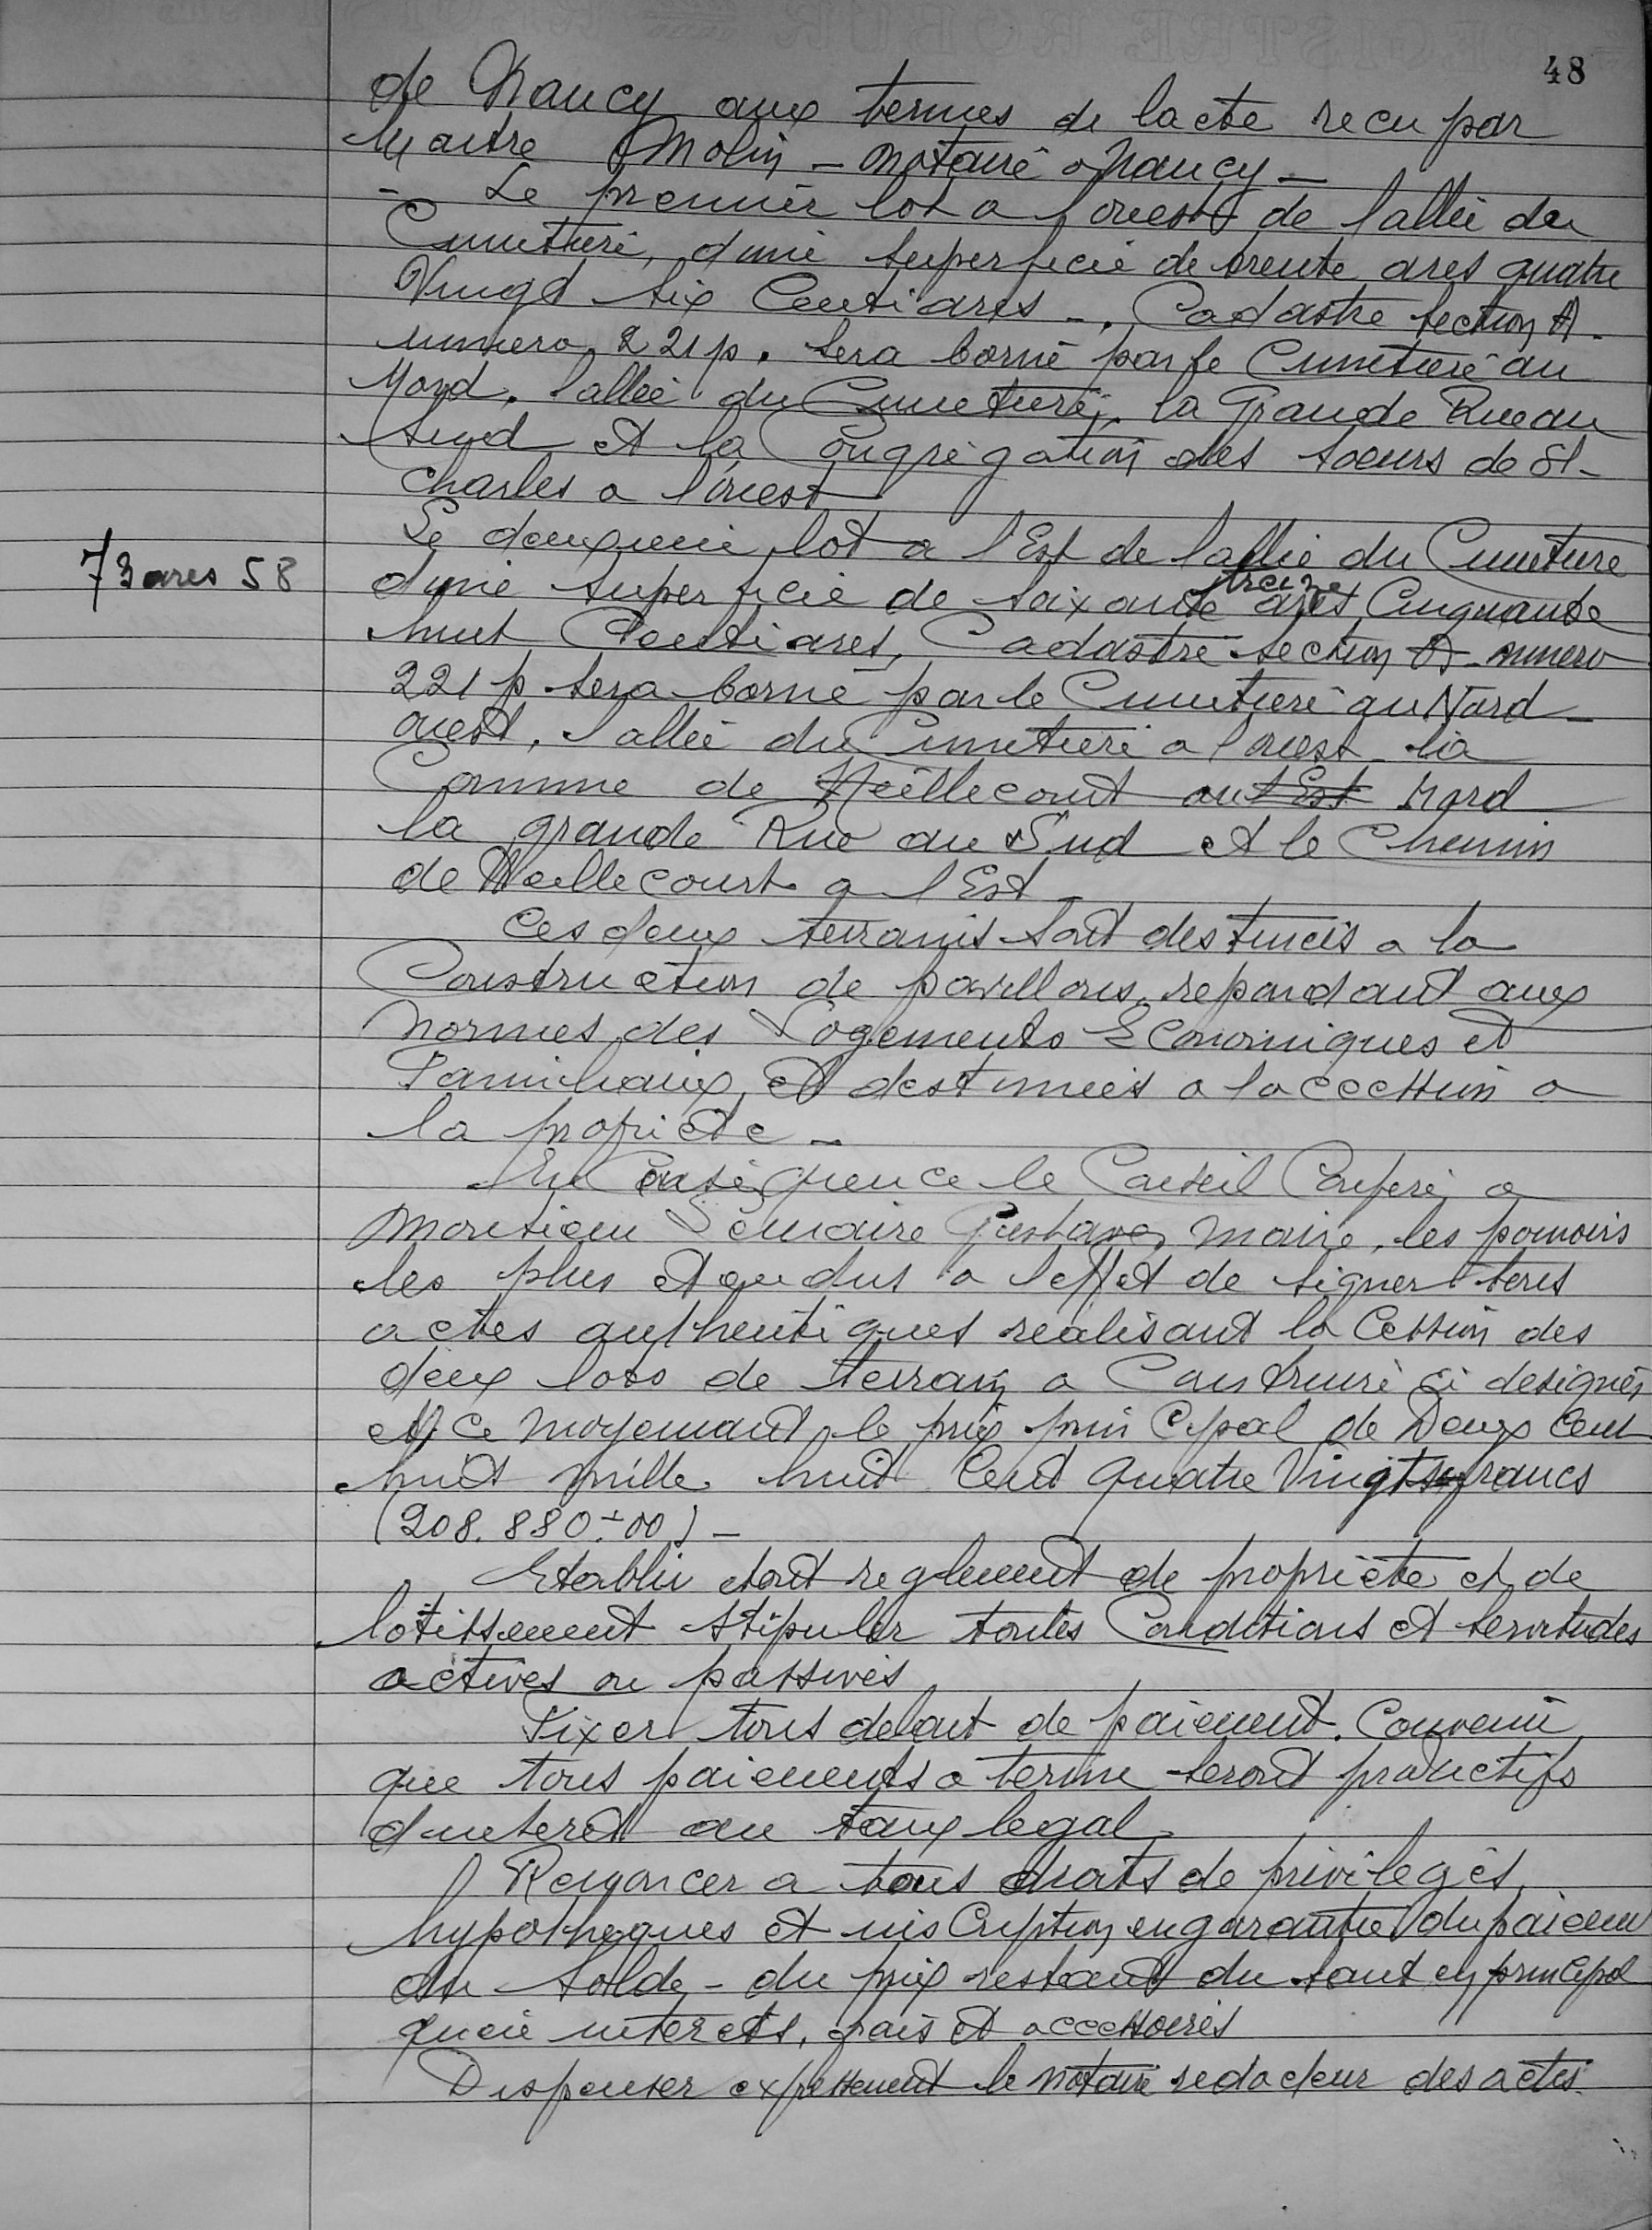 48
de Nancy aux termes de lacte recu par
Maitre Molin - notaire a Nancy -
- Le premier lot a l'ouest de l'allée du
Cimetiere, d'une superficie de trente ares quatre
Vingt six Centiares -. Cadastre section A.
numero 221p. sera borné par le Cimetière au
Nord. l'allée du Cimetière, la Grande Rue au
Sud et la Congrégation des soeurs de St-
Charles a l'ouest
Le deuxieme lot a l'Est de l'allée du Cimetiere
73 ares 58
d'une superficie de soixante treize ares Cinquante
huit Centiares, Cadastré section A numero
221p sera borné par le Cimetière au Nord-
ouest, l'allée du Cimetière a l'ouest la
Commune de Heillecourt au l'Est Nord
la grande Rue au Sud et le Chemin
de Heillecourt a l'Est
Ces deux terrains sont destinés a la
Construction de pavillons repondant aux
normes des Logements Economiques et
Familiaux, et destinés a laccession a
la propriété -
En Conséquence le Conseil Conferé a
Monsieur Lemaire Gustave, Maire, les pouvoirs
les plus etendus a leffet de signer tous
actes authentiques realisant la Cession des
deux lots de terrain a Construire ci designés
et ce moyennant le prix principal de Deux Cent
huit mille huit Cent quatre Vingts francs
(208.880.00) -
Etablir tout reglement de propriété et de
lotissement stipuler toutes Conditions et servitudes
actives ou passives
Fixer tous delais de paiement. Convenir
que tous paiements a terme seront productifs
d'interet au taux legal.
Renoncer a tous droits de privilèges,
hypotheques et inscription en garantie du paiement
du solde - du prix restant du tant en principal
qu'en interets, frais et accessoires
Dispenser expressement le notaire redacteur des actes